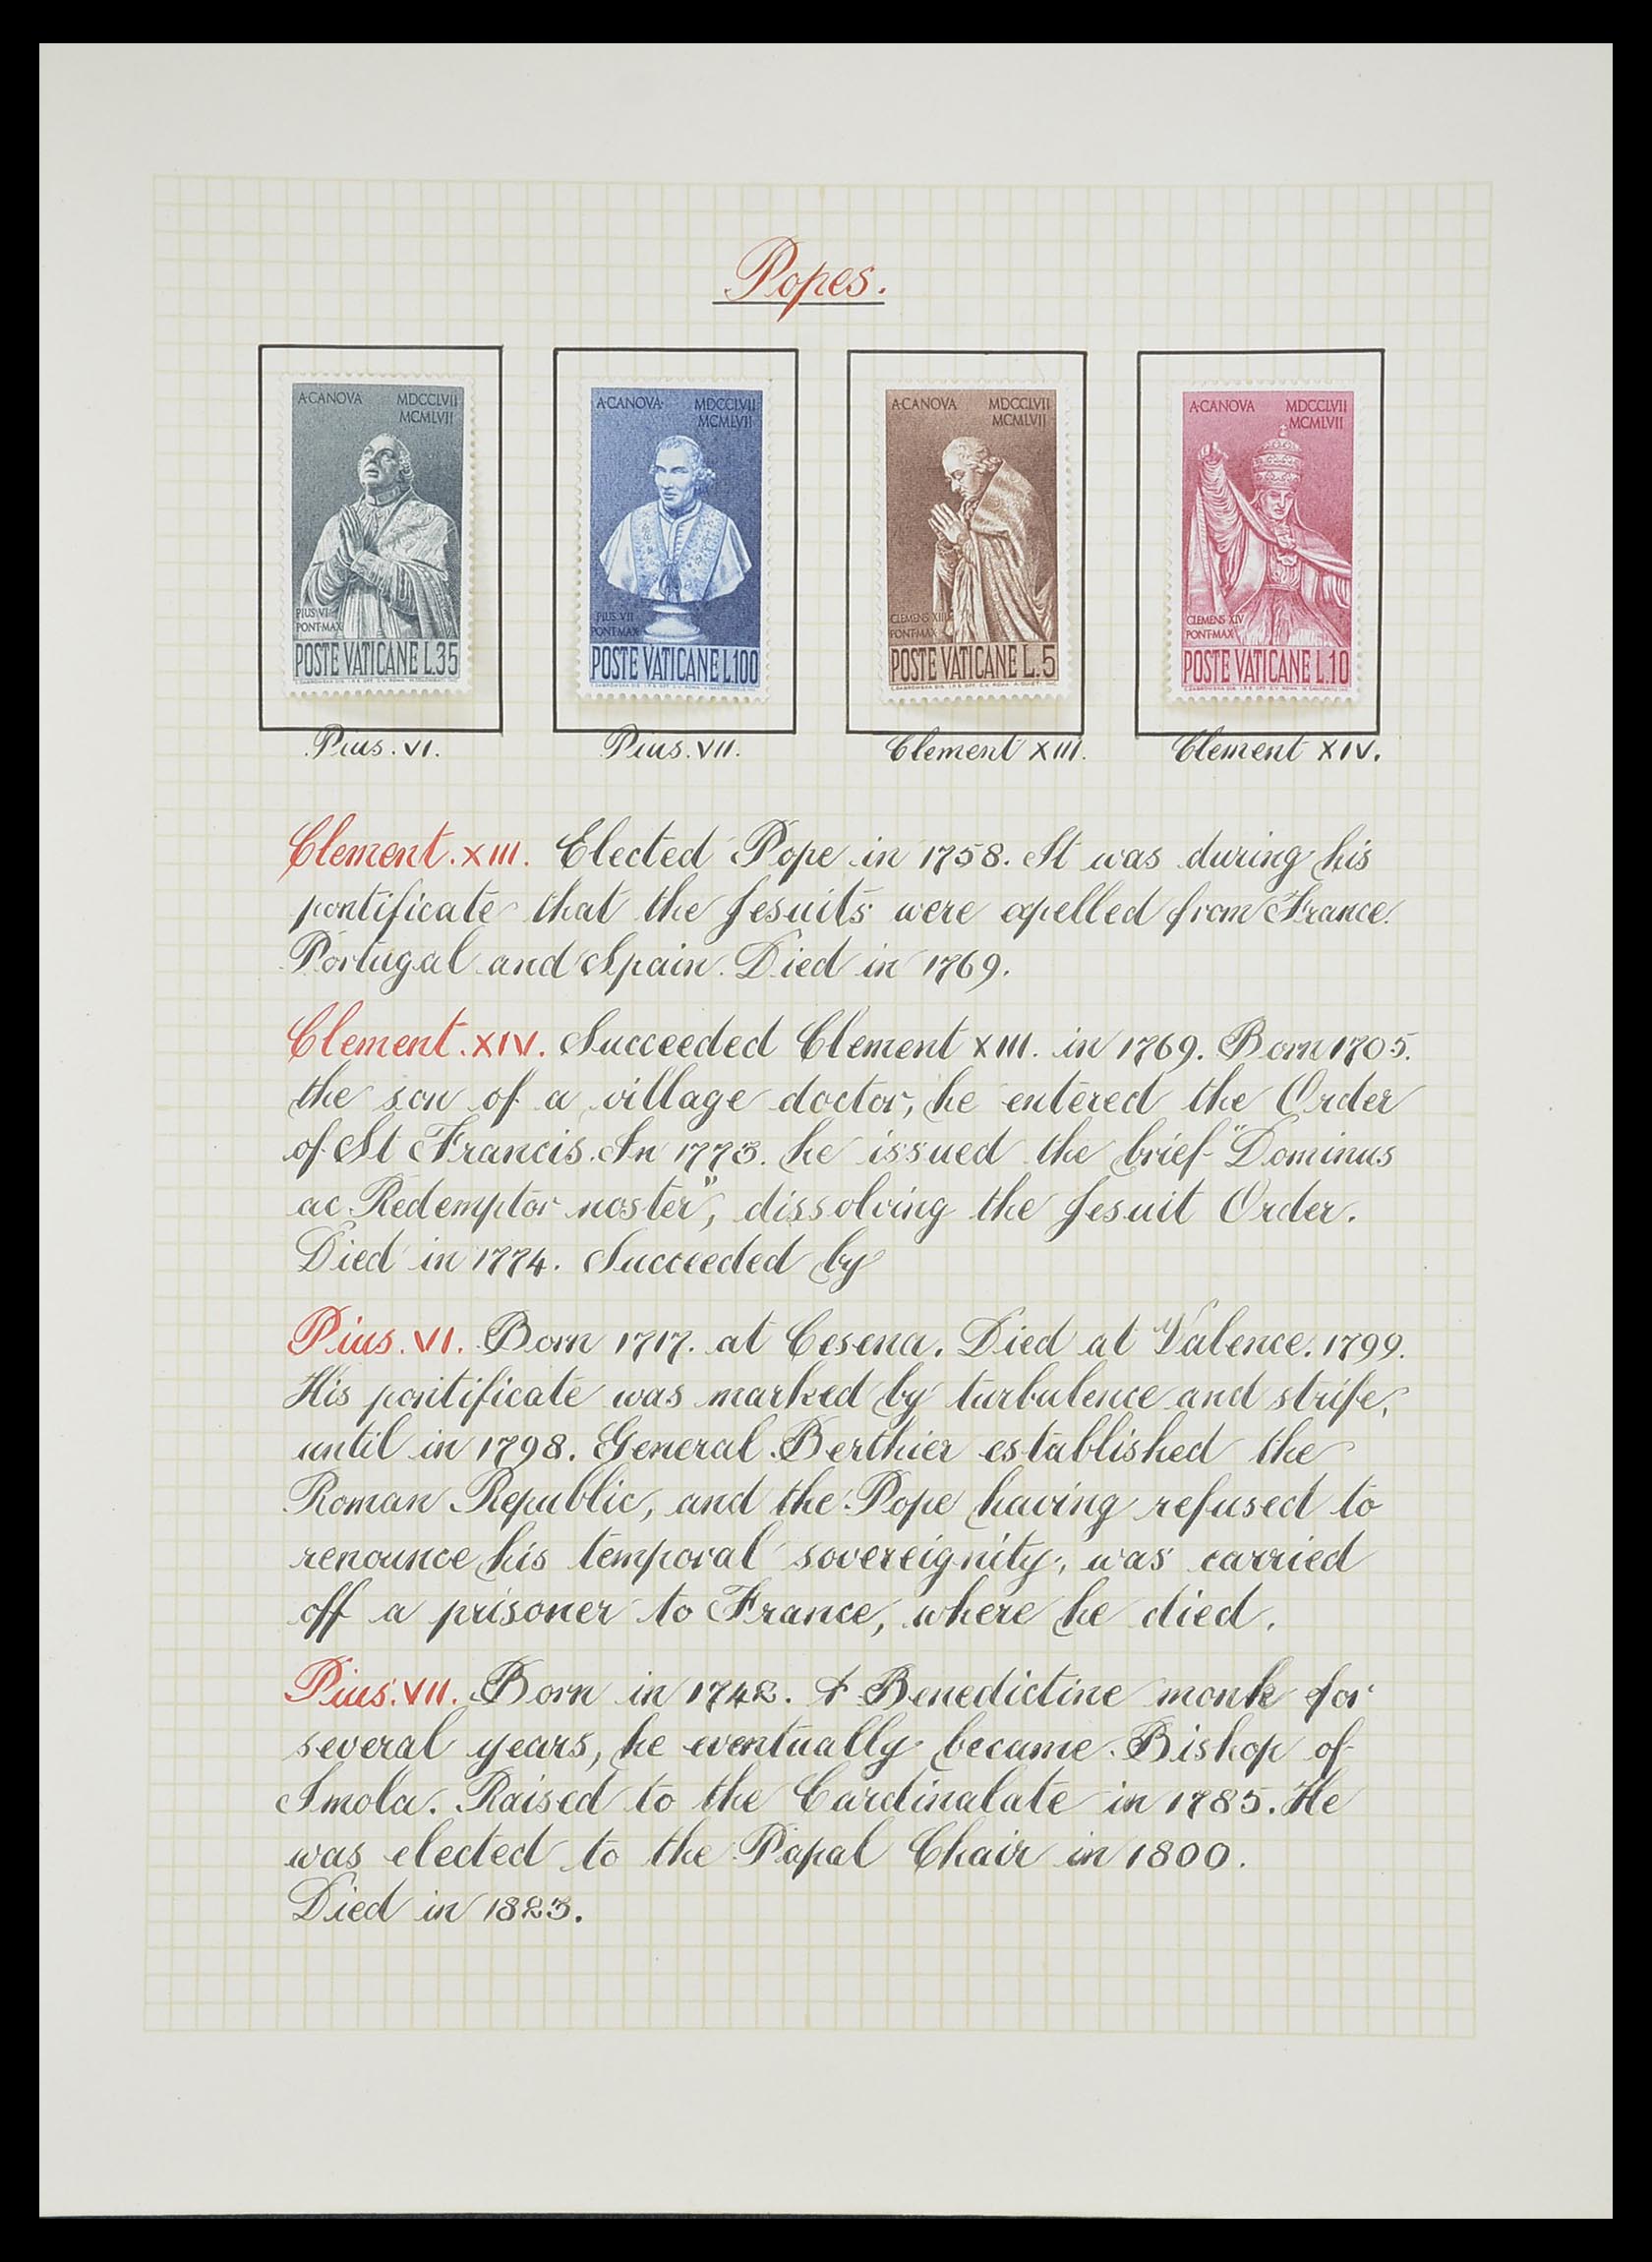 Popes.
A·CANOVA MDCCLVII
MCMLVII
PIUS VI
PONT·MAX
POSTE VATICANE L.35
A·CANOVA· MDCCLVII
MCMLVII
PIUS VII
PONT·MAX
POSTE VATICANE L.100
A·CANOVA MDCCLVII
MCMLVII
CLEMENS XIII
PONT·MAX
POSTE VATICANE L.5
A·CANOVA MDCCLVII
MCMLVII
CLEMENS XIV
PONT·MAX
POSTE VATICANE L.10
Pius. VI.
Pius. VII.
Clement XIII.
Clement XIV.
Clement. XIII. Elected Pope in 1758. It was during his
pontificate that the Jesuits were expelled from France.
Portugal and Spain. Died in 1769.
Clement. XIV. Succeeded Clement XIII. in 1769. Born 1705.
the son of a village doctor, he entered the Order
of St Francis. In 1773. he issued the brief "Dominus
ac Redemptor noster", dissolving the Jesuit Order.
Died in 1774. Succeeded by
Pius. VI. Born 1717. at Cesena. Died at Valence. 1799.
His pontificate was marked by turbulence and strife,
until in 1798. General Berthier established the
Roman Republic, and the Pope having refused to
renounce his temporal sovereignity, was carried
off a prisoner to France, where he died.
Pius. VII. Born in 1742. A Benedictine monk for
several years, he eventually became Bishop of
Imola. Raised to the Cardinalate in 1785. He
was elected to the Papal Chair in 1800.
Died in 1823.